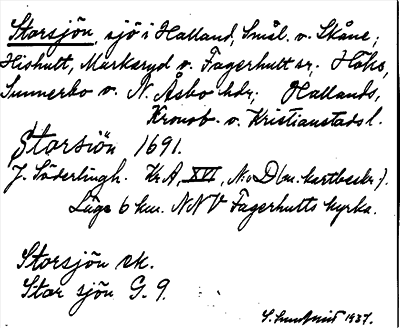 Storsjön, sjö i Halland, Smål. o. Skåne;
Hishult, Markaryd o. Fagerhult sr, Höks,
Sunnerbo o. N. Åsbo hdr; Hallands,
Kronob. o. Kristianstads l.
Storsiön 1691.
J. Söderlingh. Kr A, XVI, N:o D (m. kartbeskr.).
Läge 6 km. NNV Fagerhults kyrka.
Storsjön ek.
Stor sjön G. 9.
1937.